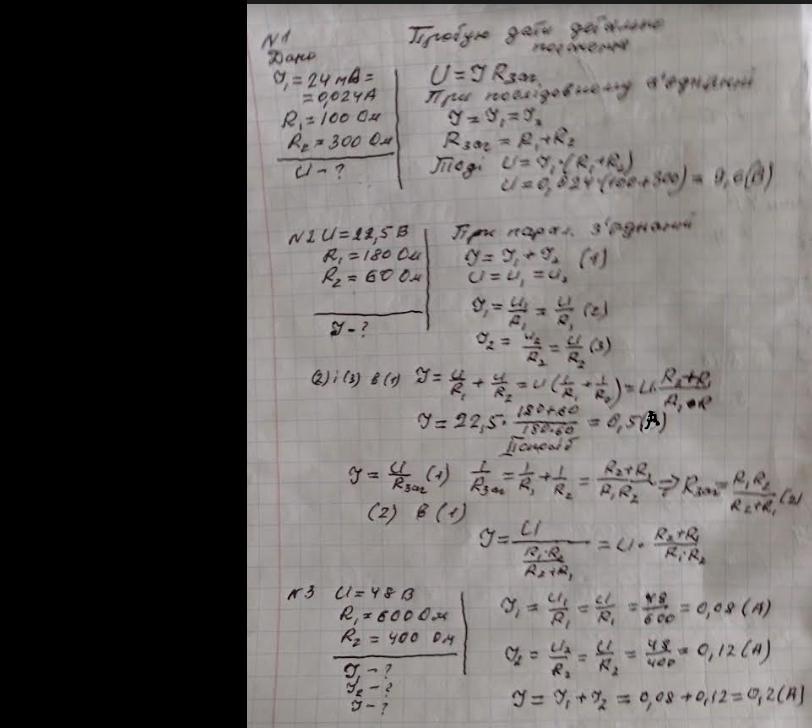 N1
Дано
I₁ = 24 мА =
= 0,024 А
R₁ = 100 Ом
R₂ = 300 Ом
U - ?
Пробую дати детальне
пояснення
U = I Rзаг
При послідовному з'єднанні
I = I₁ = I₂
Rзаг = R₁ + R₂
Тоді U = I₁·(R₁+R₂)
U = 0,024·(100+300) = 9,6(В)
N2 U = 22,5 В
R₁ = 180 Ом
R₂ = 60 Ом
I - ?
При парал. з'єднанні
I = I₁ + I₂ (1)
U = U₁ = U₂
I₁ = U₁/R₁ = U/R₁ (2)
I₂ = U₂/R₂ = U/R₂ (3)
(2) і (3) в (1) I = U/R₁ + U/R₂ = U(1/R₁ + 1/R₂) = U·(R₂+R₁)/(R₁·R
I = 22,5 · (180+60)/(180·60) = 0,5(А)
II спосіб
I = U/Rзаг (1) 1/Rзаг = 1/R₁ + 1/R₂ = (R₂+R₁)/(R₁R₂) ⇒ Rзаг = R₁R₂/(R₂+R₁) (2)
(2) в (1)
I = U/((R₁·R₂)/(R₂+R₁)) = U · (R₂+R₁)/(R₁·R₂)
N3 U = 48 В
R₁ = 600 Ом
R₂ = 400 Ом
I₁ - ?
I₂ - ?
I - ?
I₁ = U₁/R₁ = U/R₁ = 48/600 = 0,08 (А)
I₂ = U₂/R₂ = U/R₂ = 48/400 = 0,12 (А)
I = I₁ + I₂ = 0,08 + 0,12 = 0,2 (А)